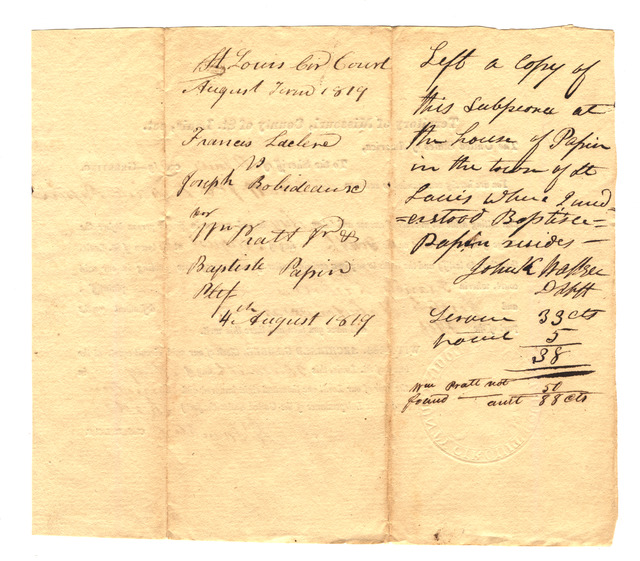 St Louis Cir Court
August Term 1819
Frances Leclere
vs
Joseph Robideaux
Wm Pratt Jr &
Baptiste Papin
4th August 1819
Left a copy of
this Subpeona at
the house of Papin
in the town of St
Louis where I und
=erstood Baptiste
Papin resides -
John K Walker
D Shff
Service 33 cts
5
38
Wm Pratt not 50
found amt 88 cts